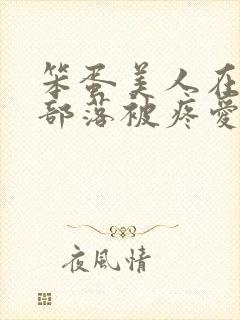 笨蛋美人在
部落被疼爱
夜風情